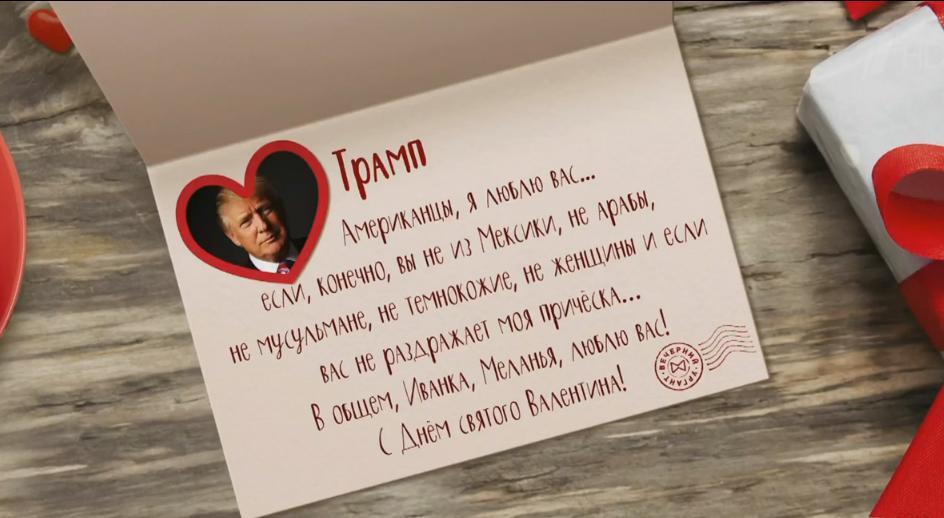 Трамп
Американцы, я люблю вас...
если, конечно, вы не из Мексики, не арабы,
не мусульмане, не темнокожие, не женщины и если
вас не раздражает моя причёска...
В общем, Иванка, Меланья, люблю вас!
С Днём святого Валентина!
ВЕЧЕРНИЙ УРГАНТ
HD